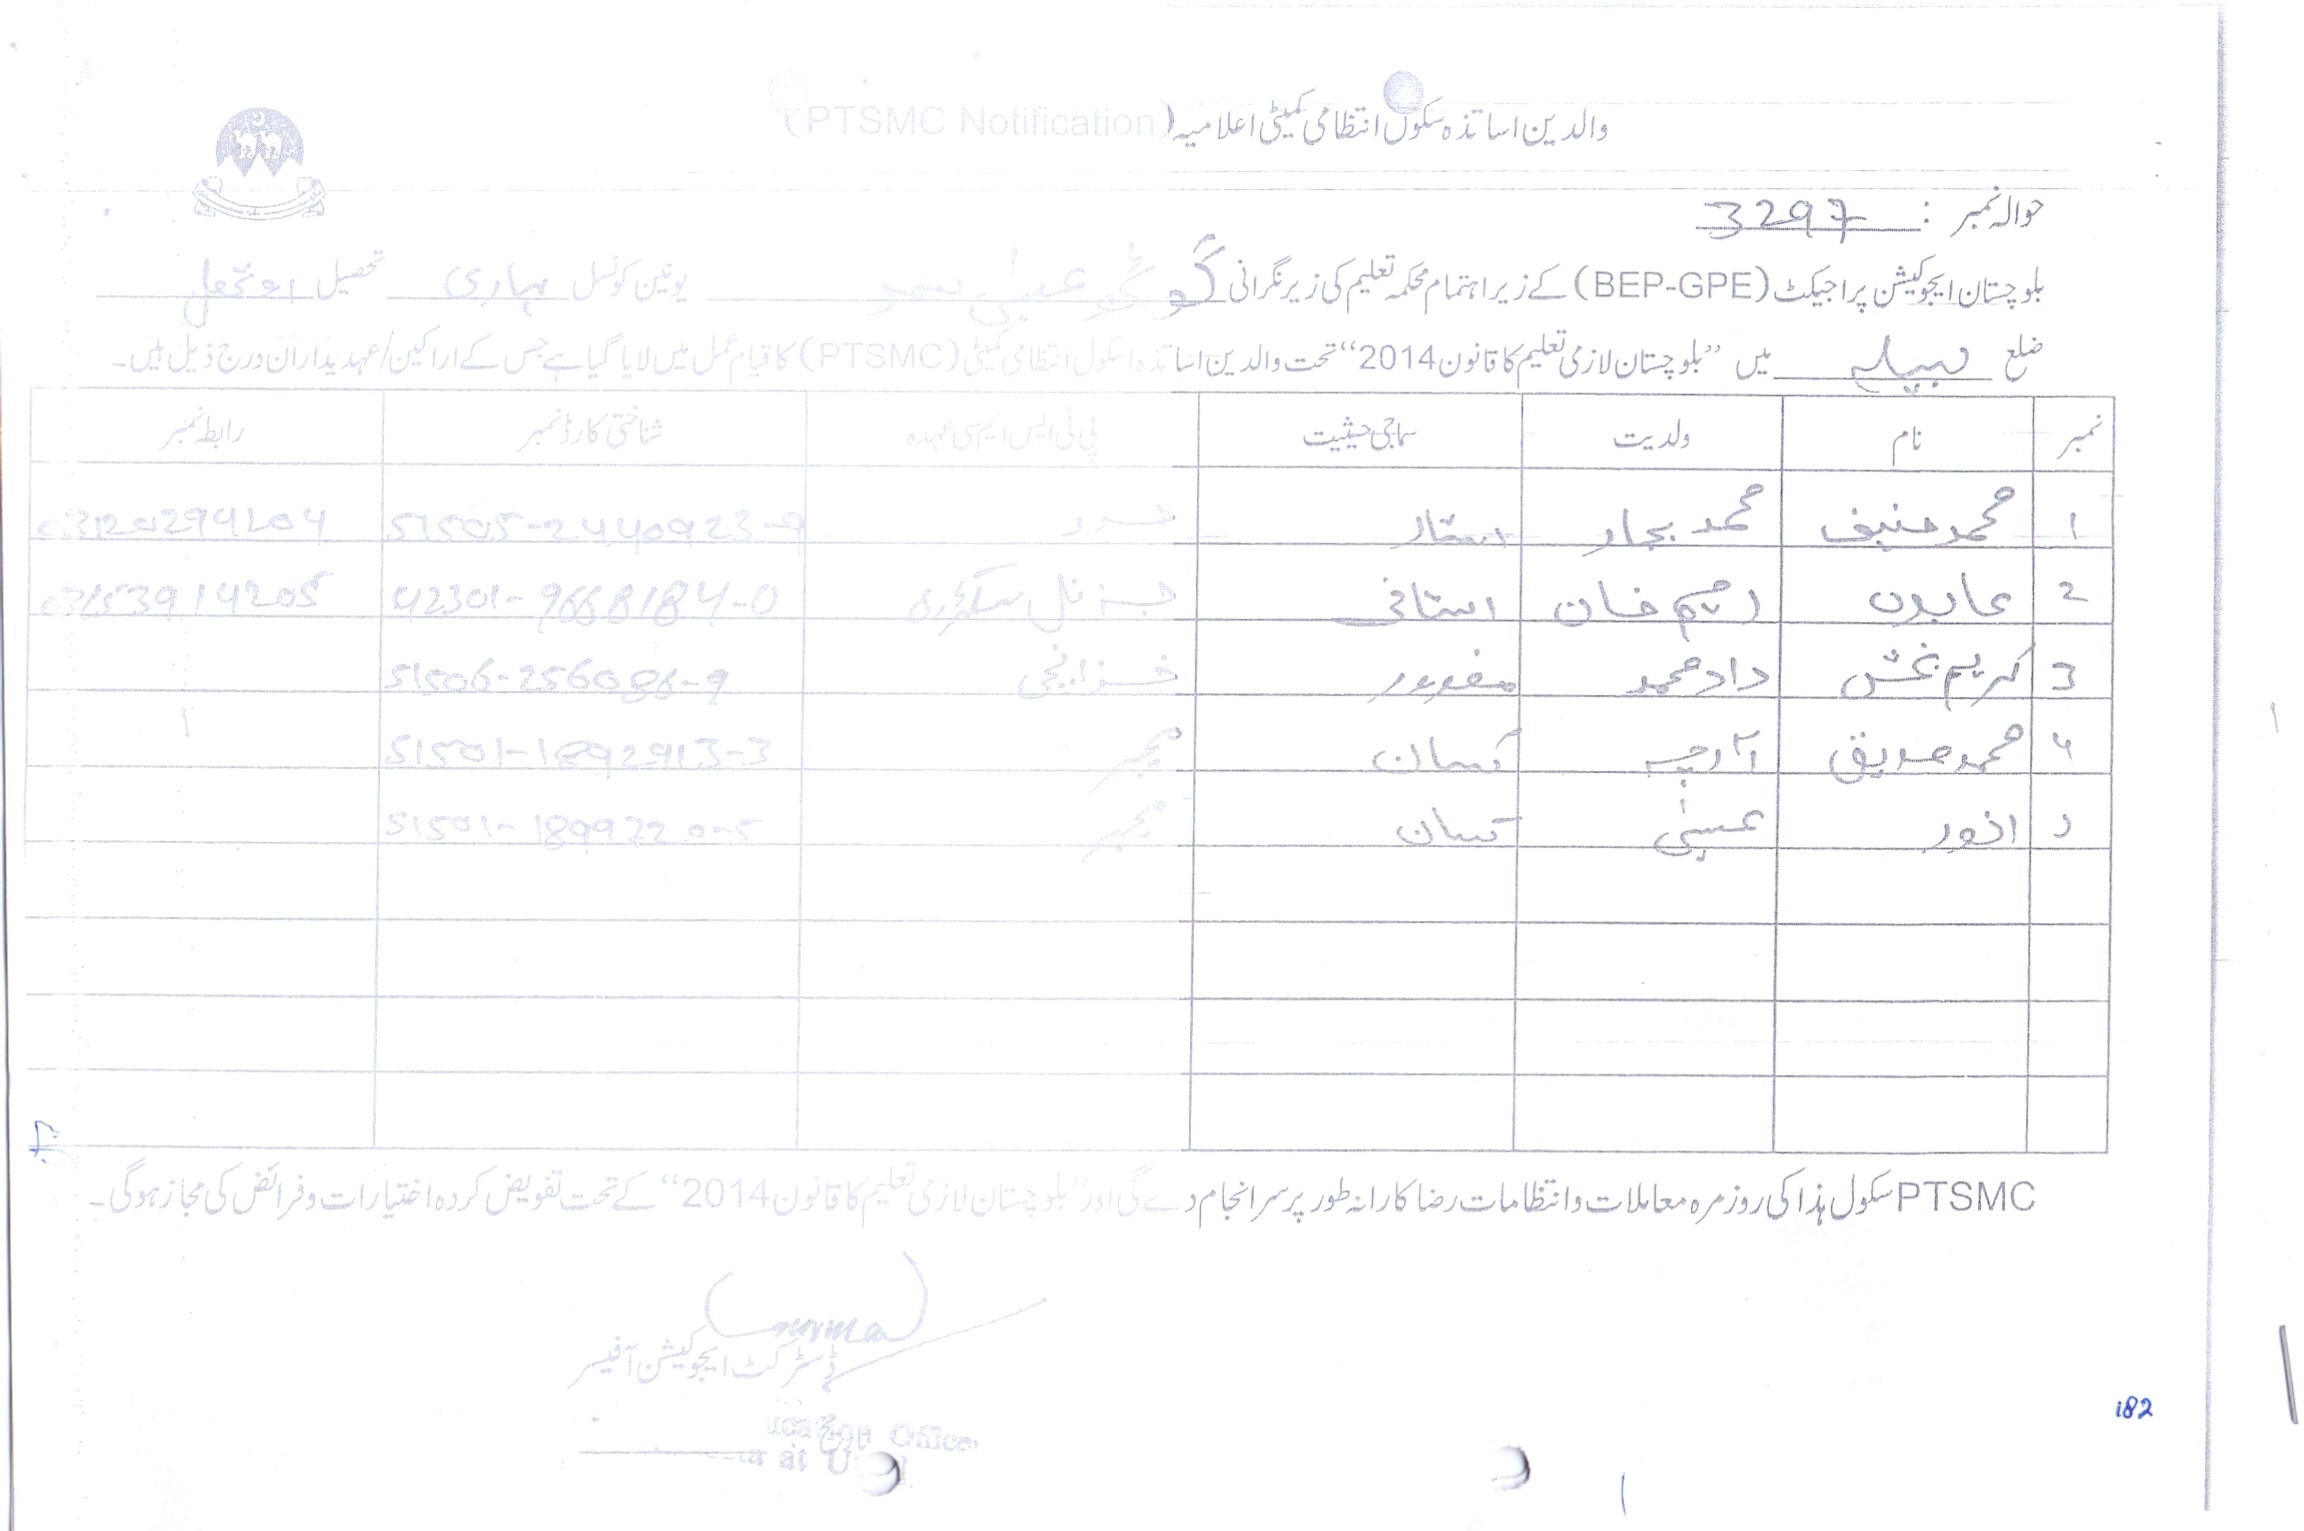 والدین اساتذہ سکول انتظامی کمیٹی اعلامیہ (PTSMC Notification)
حوالہ نمبر : 3297
بلوچستان ایجوکیشن پراجیکٹ (BEP-GPE) کے زیر اہتمام محکمہ تعلیم کی زیر نگرانی یونین کونسل تحصیل
ضلع لسبیلہ میں ”بلوچستان لازمی تعلیم کا قانون 2014“ تحت والدین اساتذہ اسکول انتظامی کمیٹی (PTSMC) کا قیام عمل میں لایا گیا ہے جس کے اراکین/عہدیداران درج ذیل ہیں۔
نمبر نام ولدیت سماجی حیثیت پی ٹی ایس ایم سی عہدہ شناختی کارڈ نمبر رابطہ نمبر
1 محمد حنیف محمد بچار استاد صدر 51505-2440923-9
2 عابدہ رحیم خان استانی جنرل سیکریٹری 42301-9668184-0 03153914205
3 کریم بخش داد محمد مزدور خزانچی 51506-256086-9
4 محمد صدیق کسان ممبر 51501-1892913-3
5 انور عیسیٰ کسان ممبر 51501-1899220-5
PTSMC سکول ہذا کی روزمرہ معاملات و انتظامات رضا کارانہ طور پر سر انجام دے گی اور ”بلوچستان لازمی تعلیم کا قانون 2014“ کے تحت تفویض کردہ اختیارات و فرائض کی مجاز ہوگی۔
ڈسٹرکٹ ایجوکیشن آفیسر
at
182